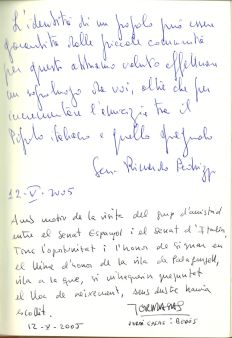 L'identità di un popolo può essere
garantita dalle piccole comunità
per questo abbiamo voluto effettuare
un sopraluogo da voi, oltre che per
incrementare l'amicizia tra il
Popolo Italiano e quello spagnolo
Sen. Riccardo Pedrizzi
12-V-2005
Amb motiu de la visita del grup d'amistad
entre el Senat Espanyol i el Senat d'Italia,
Tinc l'oportunitat i l'honor de signar en
el llibre d'honor de la vila de Palafrugell,
vila a la que, si m'haguessin preguntat
el lloc de naixement, sens dubte hauria
escollit.
12-V-2005